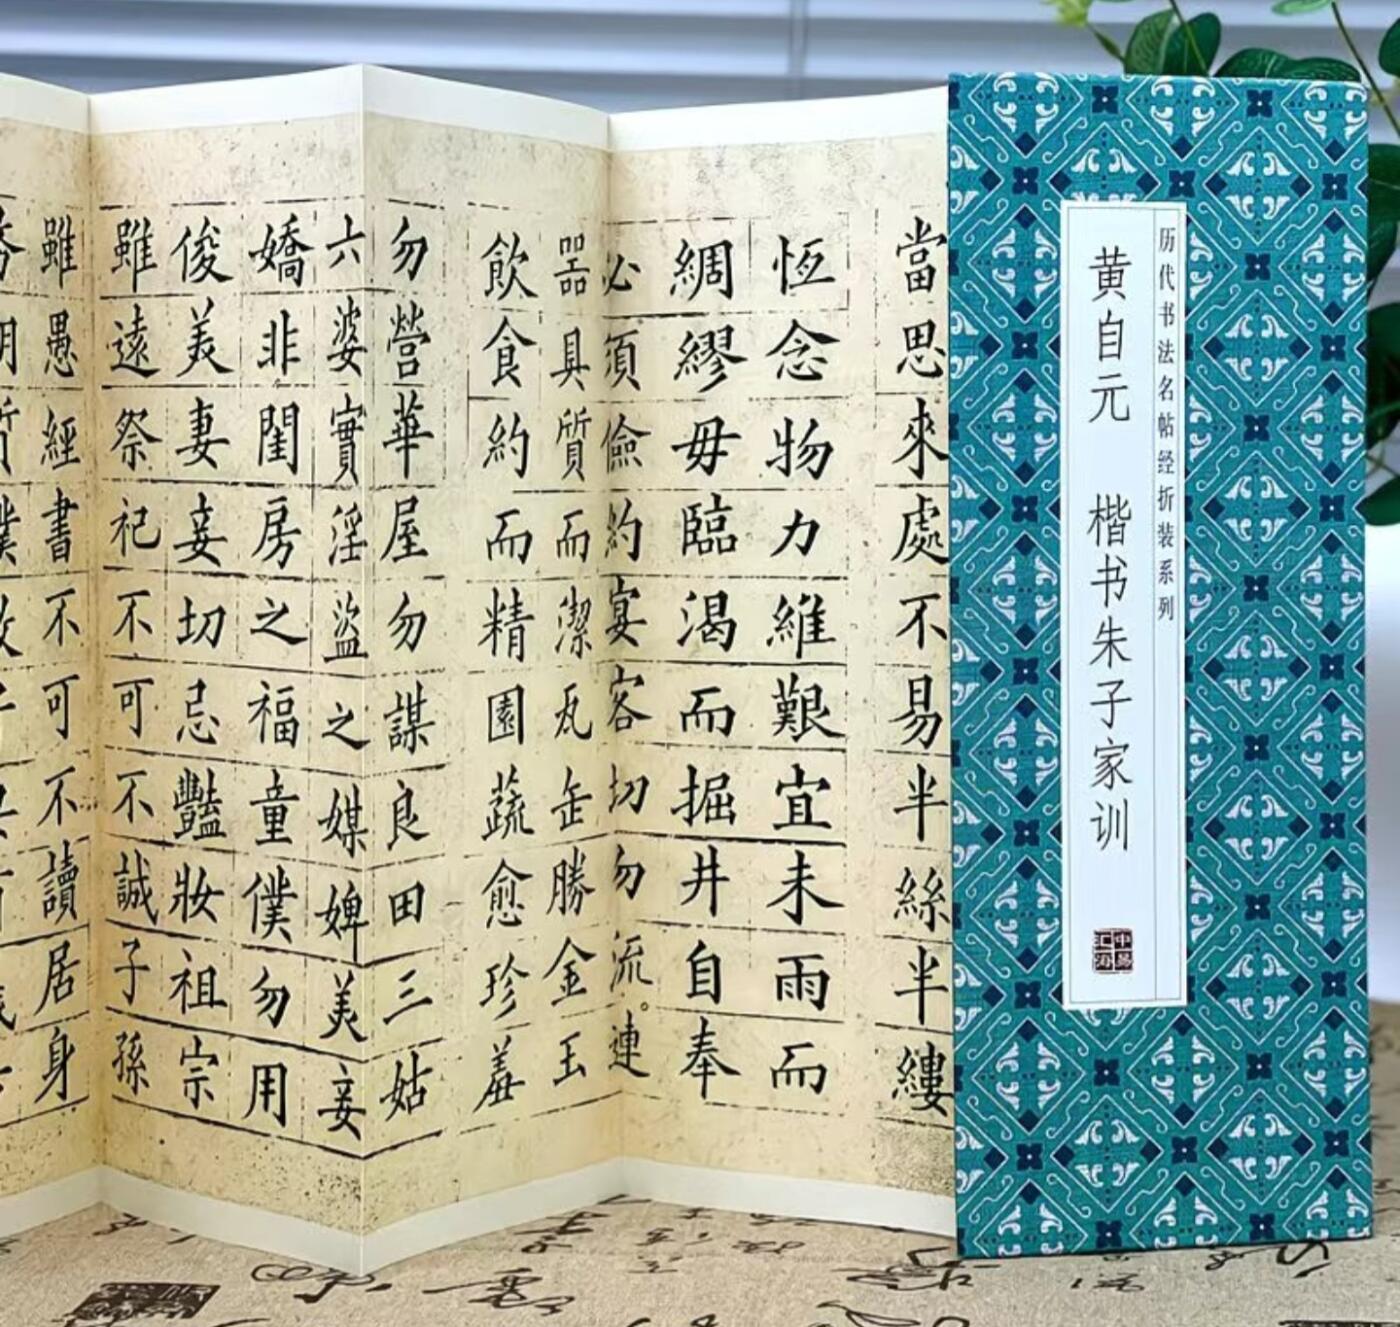 历代书法名帖经折装系列
黄自元 楷书朱子家训
當思來處不易半絲半縷
恆念物力維艱宜未雨而
綢繆毋臨渴而掘井自奉
必須儉約宴客切勿流連
器具質而潔瓦缶勝金玉
飲食約而精園蔬愈珍羞
勿營華屋勿謀良田三姑
六婆實淫盜之媒婢美妾
嬌非閨房之福童僕勿用
俊美妻妾切忌豔妝祖宗
雖遠祭祀不可不誠子孫
雖愚經書不可不讀居身